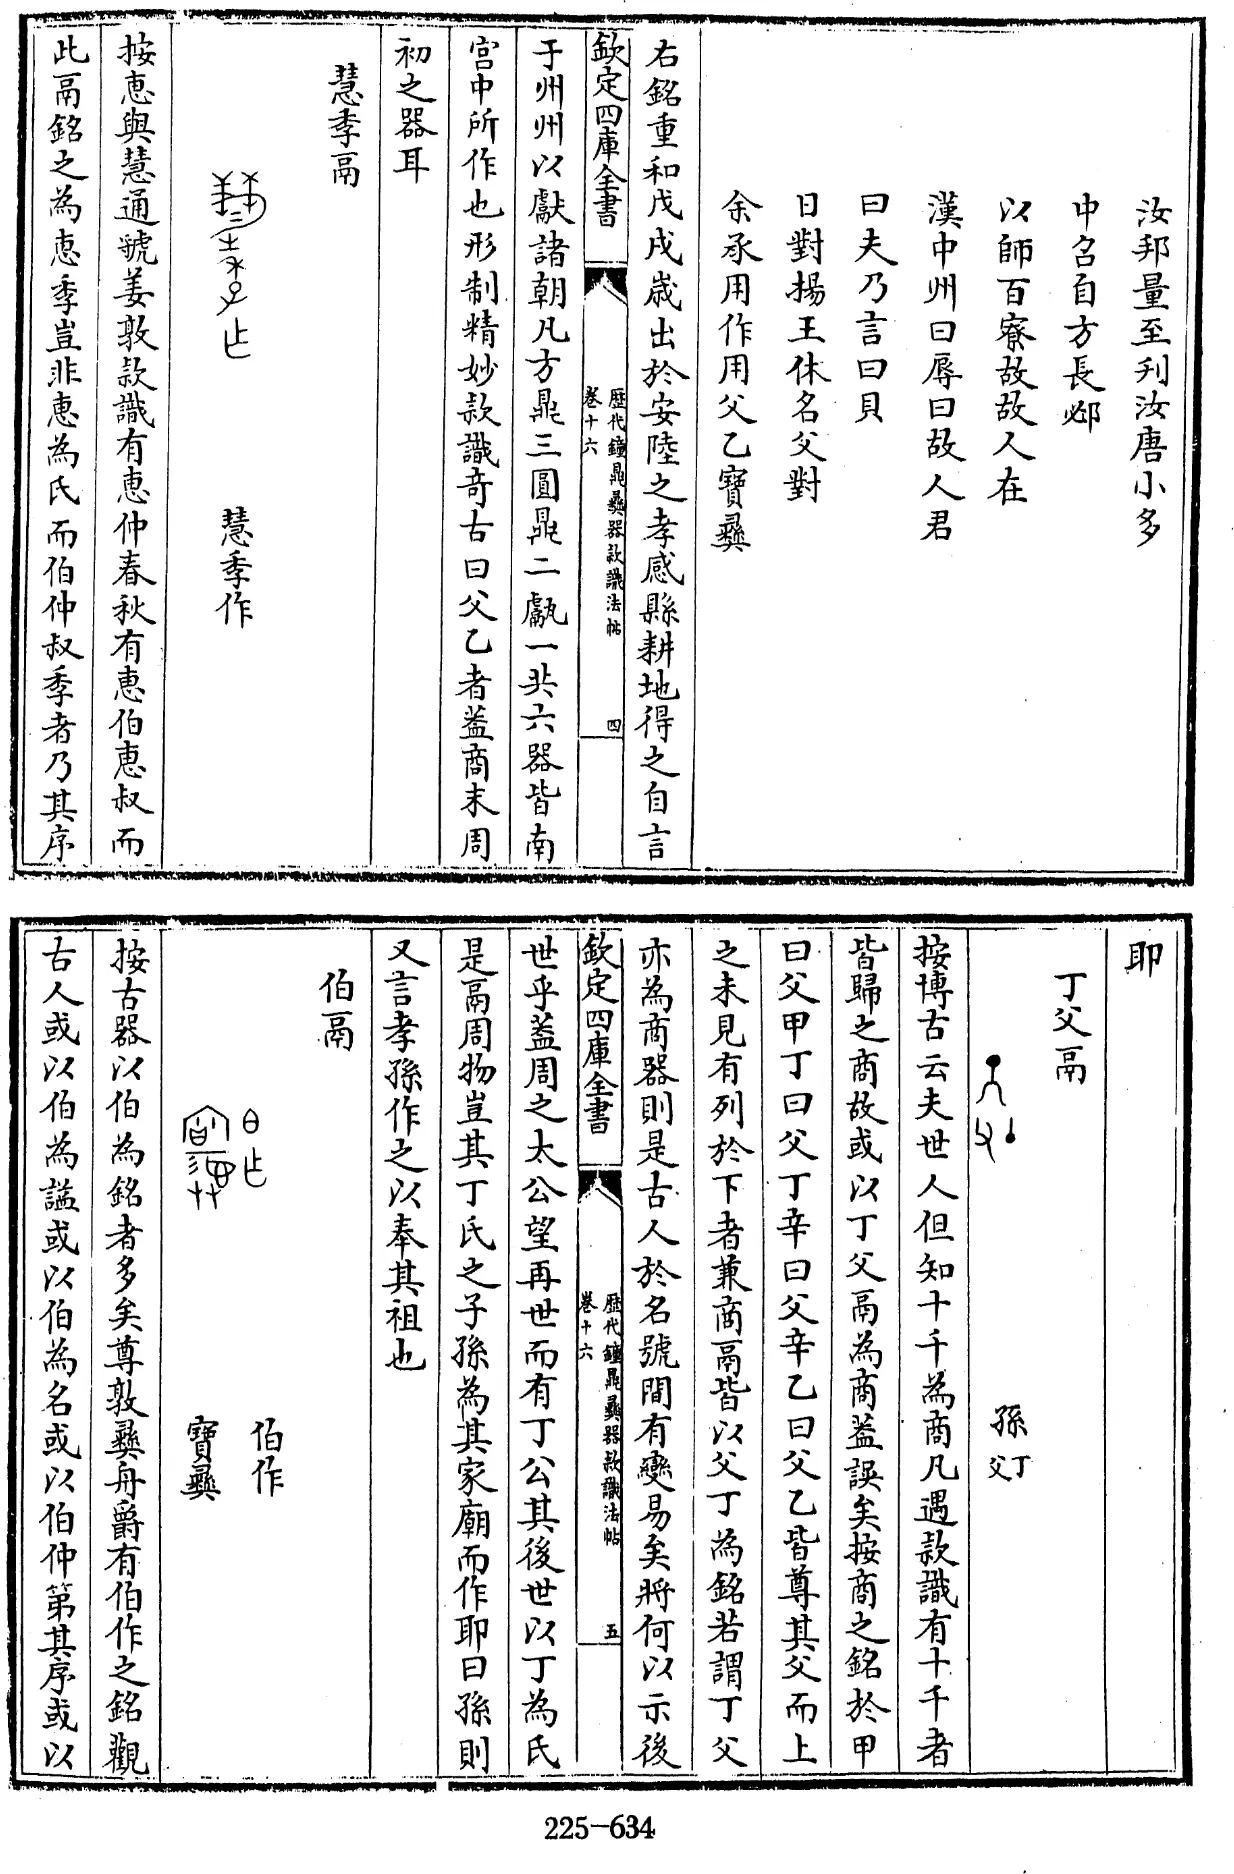 汝邦量至刋汝唐小多
中名自方長邲
以師百寮故故人在
漢中州曰辱曰故人君
曰夫乃言曰貝
日對揚王休名父對
余承用作用父乙寶彝
右銘重和戊戌歲出於安陸之孝感縣耕地得之自言
欽定四庫全書
歴代鐘鼎彝器款識法帖
卷十六
四
于州州以獻諸朝凡方鼎三圓鼎二甗一共六器皆南
宫中所作也形制精妙款識竒古曰父乙者葢商末周
初之器耳
慧季鬲
慧季作
按惠與慧通虢姜敦款識有惠仲春秋有惠伯惠叔而
此鬲銘之為惠季豈非惠為氏而伯仲叔季者乃其序
耶
丁父鬲
孫
丁
父
按博古云夫世人但知十千為商凡遇款識有十千者
皆歸之商故或以丁父鬲為商葢誤矣按商之銘於甲
曰父甲丁曰父丁辛曰父辛乙曰父乙皆尊其父而上
之未見有列於下者兼商鬲皆以父丁為銘若謂丁父
亦為商器則是古人於名號間有變易矣將何以示後
欽定四庫全書
歴代鐘鼎彝器款識法帖
卷十六
五
世乎葢周之太公望再世而有丁公其後世以丁為氏
是鬲周物豈其丁氏之子孫為其家廟而作耶曰孫則
又言孝孫作之以奉其祖也
伯鬲
伯作
寶彝
按古器以伯為銘者多矣尊敦彝舟爵有伯作之銘觀
古人或以伯為謚或以伯為名或以伯仲第其序或以
225-634